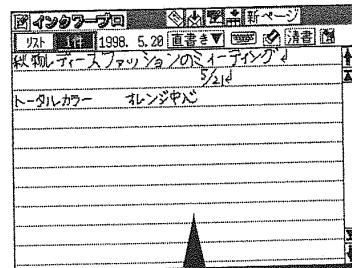 インクワープロ 新ページ
リスト 1件 1998. 5.20 直書き▼ 清書
秋物レディースファッションのミィーティング↲
5/21↲
トータルカラー オレンジ中心